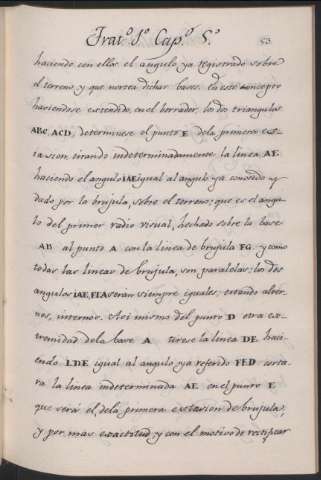 Trat.º I.º Cap.º 5.º 53
haciendo con ellas el angulo ya registrado sobre
el terreno y que vertea dichas bases. En este concepto
haviendose estendido, en el borrador, los dos triangulos
ABC, ACD, determinese el punto E dela primera es-
tasion, tirando indeterminadamente la linea AE
haciendo el angulo IAE igual al angulo ya conosido y
dado por la brujula, sobre el terreno; que es el angu-
lo del primer radio visual, hechado sobre la base
AB al punto A con la linea de brujula FG. y como
todas las lineas de brujula, son paralelas; los dos
angulos IAE, FEA seran siempre iguales, estando alter-
nos, internos. Asi mismo del punto D otra ex-
tremidad dela base A tirese la linea DE haci-
endo LDE igual al angulo ya referido FED corta-
ra la linea indeterminada AE en el punto E
que será el, dela primera estasion de brujula,
y por mas exactitud y con el motivo de rectificar